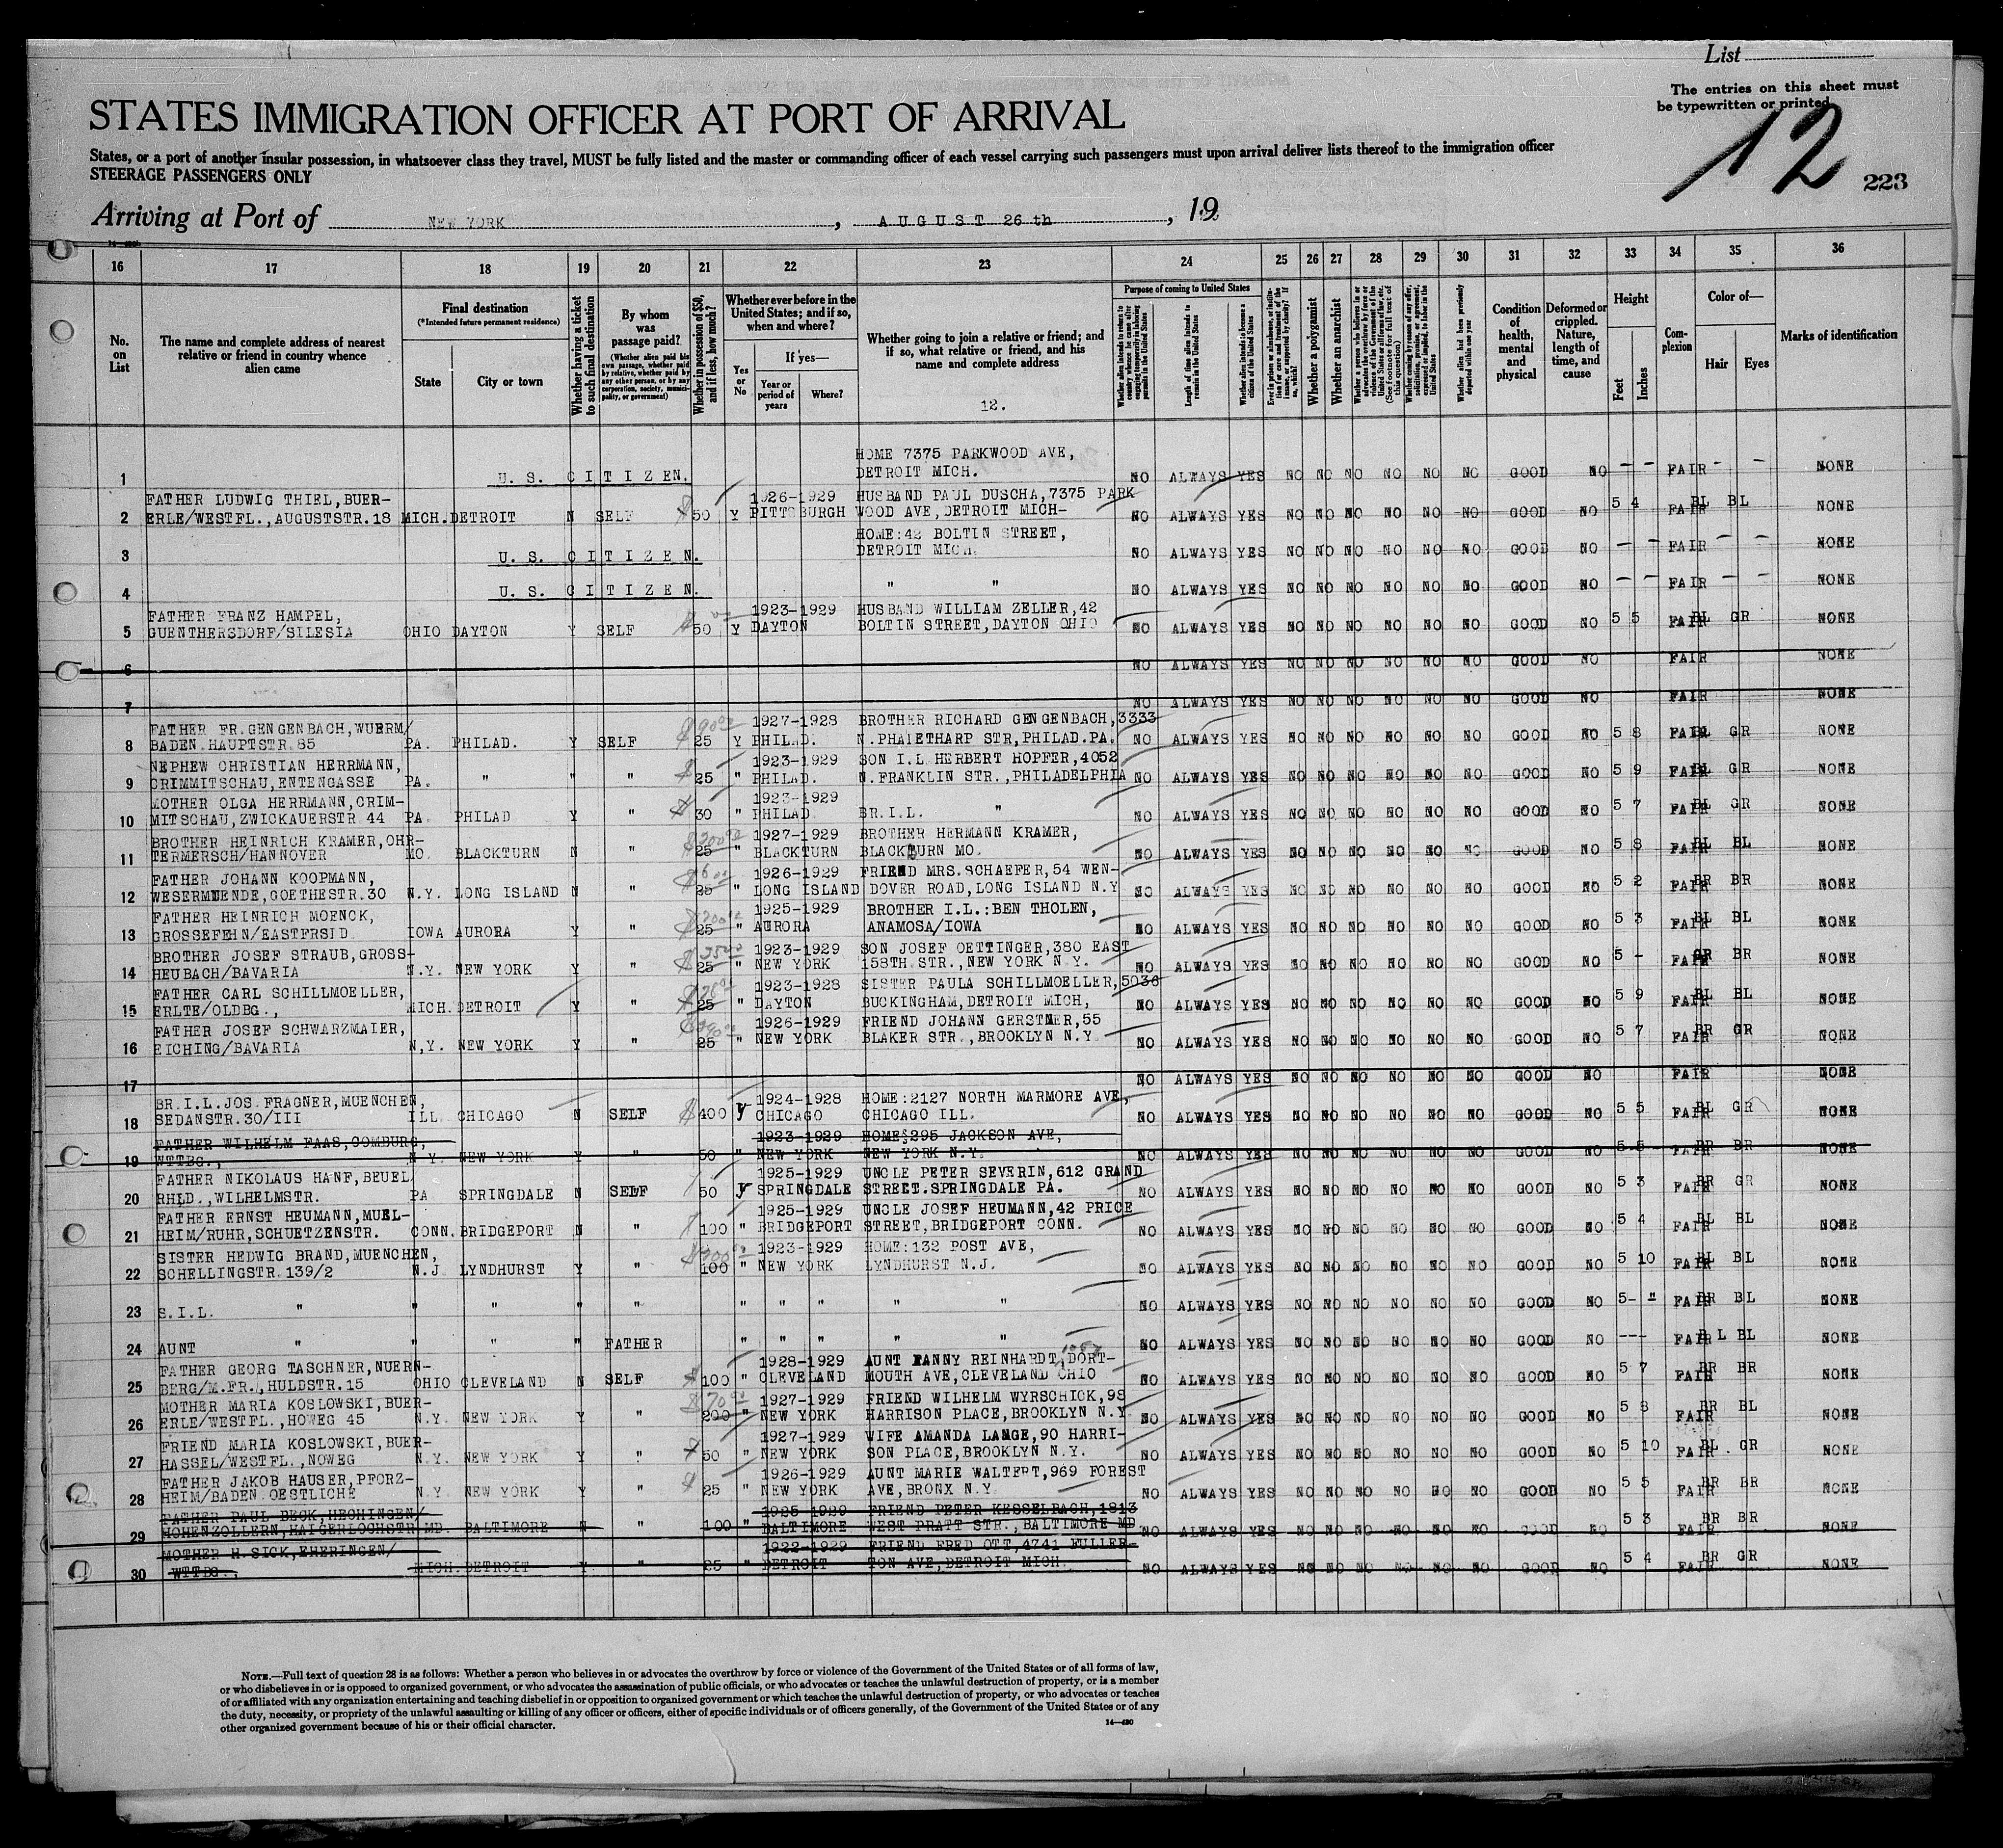 List
The entries on this sheet must
be typewritten or printed
12
223
STATES IMMIGRATION OFFICER AT PORT OF ARRIVAL
States, or a port of another insular possession, in whatsoever class they travel, MUST be fully listed and the master or commanding officer of each vessel carrying such passengers must upon arrival deliver lists thereof to the immigration officer
STEERAGE PASSENGERS ONLY
Arriving at Port of NEW YORK, AUGUST 26 th, 19
16 17 18 19 20 21 22 23 24 25 26 27 28 29 30 31 32 33 34 35 36
No. on List
The name and complete address of nearest relative or friend in country whence alien came
Final destination
(*Intended future permanent residence)
State
City or town
Whether having a ticket to such final destination
By whom was passage paid?
(Whether alien paid his own passage, whether paid by relative, whether paid by any other person, or by any corporation, society, municipality, or government)
Whether in possession of $50, and if less, how much?
Whether ever before in the United States; and if so, when and where?
Yes or No
If yes—
Year or period of years
Where?
Whether going to join a relative or friend; and if so, what relative or friend, and his name and complete address
12.
Purpose of coming to United States
Length of time alien intends to remain in the United States
Whether alien intends to become a citizen of the United States
Whether a polygamist
Whether an anarchist
Whether alien had been previously deported within one year
Condition of health, mental and physical
Deformed or crippled. Nature, length of time, and cause
Height
Feet
Inches
Complexion
Color of—
Hair
Eyes
Marks of identification
HOME 7375 PARKWOOD AVE,
1 U. S. CITIZEN. DETROIT MICH. NO ALWAYS YES NO NO NO NO NO NO GOOD NO - - FAIR - - NONE
FATHER LUDWIG THIEL, BUER- 1926-1929 HUSBAND PAUL DUSCHA, 7375 PARK
2 ERLE/WESTFL., AUGUSTSTR. 18 MICH. DETROIT N SELF $50 Y PITTSBURGH WOOD AVE, DETROIT MICH- NO ALWAYS YES NO NO NO NO NO NO GOOD NO 5 4 FAIR BL BL NONE
HOME: 42 BOLTIN STREET,
3 U. S. CITIZEN. DETROIT MICH. NO ALWAYS YES NO NO NO NO NO NO GOOD NO - - FAIR - - NONE
4 U. S. CITIZEN. " " NO ALWAYS YES NO NO NO NO NO NO GOOD NO - - FAIR - - NONE
FATHER FRANZ HAMPEL, 1923-1929 HUSBAND WILLIAM ZELLER, 42
5 GUENTHERSDORF/SILESIA OHIO DAYTON Y SELF $50 Y DAYTON BOLTIN STREET, DAYTON OHIO NO ALWAYS YES NO NO NO NO NO NO GOOD NO 5 5 FAIR BL GR NONE
6 NO ALWAYS YES NO NO NO NO NO NO GOOD NO FAIR NONE
7 NO ALWAYS YES NO NO NO NO NO NO GOOD NO FAIR NONE
FATHER FR. GENGENBACH, WUERM/ $90 1927-1928 BROTHER RICHARD GENGENBACH, 3333
8 BADEN. HAUPTSTR. 85 PA. PHILAD. Y SELF 25 Y PHILAD. N. PHALETHARP STR, PHILAD. PA. NO ALWAYS YES NO NO NO NO NO NO GOOD NO 5 8 FAIR BL GR NONE
NEPHEW CHRISTIAN HERRMANN, 1923-1929 SON I.L. HERBERT HOPFER, 4052
9 CRIMMITSCHAU, ENTENGASSE PA. " " " $25 " PHILAD. N. FRANKLIN STR., PHILADELPHIA NO ALWAYS YES NO NO NO NO NO NO GOOD NO 5 9 FAIR BL GR NONE
MOTHER OLGA HERRMANN, CRIM- 1923-1929
10 MITSCHAU, ZWICKAUERSTR 44 PA. PHILAD Y " $30 " PHILAD BR. I.L. " NO ALWAYS YES NO NO NO NO NO NO GOOD NO 5 7 FAIR BL GR NONE
BROTHER HEINRICH KRAMER, OHR- $200 1927-1929 BROTHER HERMANN KRAMER,
11 TERMERSCH/HANNOVER MO. BLACKTURN N " 25 " BLACKTURN BLACKTURN MO. NO ALWAYS YES NO NO NO NO NO NO GOOD NO 5 8 FAIR BL BL NONE
FATHER JOHANN KOOPMANN, 1926-1929 FRIEND MRS. SCHAEFER, 54 WEN-
12 WESERMUENDE, GOETHESTR. 30 N.Y. LONG ISLAND N " 25 " LONG ISLAND DOVER ROAD, LONG ISLAND N.Y NO ALWAYS YES NO NO NO NO NO NO GOOD NO 5 2 FAIR BR BR NONE
FATHER HEINRICH MOENCK, $200 1925-1929 BROTHER I.L.: BEN THOLEN,
13 GROSSEFEHN/EASTFRSLD. IOWA AURORA Y " 25 " AURORA ANAMOSA/IOWA NO ALWAYS YES NO NO NO NO NO NO GOOD NO 5 3 FAIR BL BL NONE
BROTHER JOSEF STRAUB, GROSS- $35 1923-1929 SON JOSEF OETTINGER, 380 EAST
14 HEUBACH/BAVARIA N.Y. NEW YORK Y " 25 " NEW YORK 158TH STR., NEW YORK N.Y. NO ALWAYS YES NO NO NO NO NO NO GOOD NO 5 - FAIR GR BR NONE
FATHER CARL SCHILLMOELLER, 1923-1928 SISTER PAULA SCHILLMOELLER, 5036
15 ERLTE/OLDBG., MICH. DETROIT Y " 25 " DAYTON BUCKINGHAM, DETROIT MICH, NO ALWAYS YES NO NO NO NO NO NO GOOD NO 5 9 FAIR BL BL NONE
FATHER JOSEF SCHWARZMAIER, 1926-1929 FRIEND JOHANN GERSTNER, 55
16 EICHING/BAVARIA N,Y. NEW YORK Y " 25 " NEW YORK BLAKER STR., BROOKLYN N.Y NO ALWAYS YES NO NO NO NO NO NO GOOD NO 5 7 FAIR BR GR NONE
17 NO ALWAYS YES NO NO NO NO NO NO GOOD NO FAIR NONE
BR. I.L. JOS. FRAGNER, MUENCHEN, 1924-1928 HOME: 2127 NORTH MARMORE AVE,
18 SEDANSTR. 30/III ILL. CHICAGO N SELF $400 Y CHICAGO CHICAGO ILL. NO ALWAYS YES NO NO NO NO NO NO GOOD NO 5 5 FAIR BL GR NONE
FATHER WILHELM FAAS, COMBURG, 1923-1929 HOME: 295 JACKSON AVE,
19 WTTBG., N.Y. NEW YORK Y " 50 " NEW YORK NEW YORK N.Y. NO ALWAYS YES NO NO NO NO NO NO GOOD NO 5 5 FAIR BR BR NONE
FATHER NIKOLAUS HANF, BEUEL 1925-1929 UNCLE PETER SEVERIN, 612 GRAND
20 RHLD., WILHELMSTR. PA SPRINGDALE N SELF 50 Y SPRINGDALE STREET. SPRINGDALE PA. NO ALWAYS YES NO NO NO NO NO NO GOOD NO 5 3 FAIR BR GR NONE
FATHER ERNST HEUMANN, MUEL- 1925-1929 UNCLE JOSEF HEUMANN, 42 PRICE
21 HEIM/RUHR, SCHUETZENSTR. CONN. BRIDGEPORT N " 100 " BRIDGEPORT STREET, BRIDGEPORT CONN. NO ALWAYS YES NO NO NO NO NO NO GOOD NO 5 4 FAIR BL BL NONE
SISTER HEDWIG BRAND, MUENCHEN, 1923-1929 HOME: 132 POST AVE,
22 SCHELLINGSTR. 139/2 N.J. LYNDHURST Y " 100 " NEW YORK LYNDHURST N.J. NO ALWAYS YES NO NO NO NO NO NO GOOD NO 5 10 FAIR BL BL NONE
23 S.I.L. " " " " " " " " " NO ALWAYS YES NO NO NO NO NO NO GOOD NO 5- " FAIR BR BL NONE
24 AUNT " " " " FATHER " " " " " NO ALWAYS YES NO NO NO NO NO NO GOOD NO --- FAIR BL BL NONE
FATHER GEORG TASCHNER, NUERN- 1928-1929 AUNT FANNY REINHARDT, DORT-
25 BERG/M.FR., HULDSTR. 15 OHIO CLEVELAND N SELF $100 " CLEVELAND MOUTH AVE, CLEVELAND OHIO NO ALWAYS YES NO NO NO NO NO NO GOOD NO 5 7 FAIR BR BR NONE
MOTHER MARIA KOSLOWSKI, BUER- $70 1927-1929 FRIEND WILHELM WYRSCHICK, 98
26 ERLE/WESTFL., HOWEG 45 N.Y. NEW YORK Y " 200 " NEW YORK HARRISON PLACE, BROOKLYN N.Y. NO ALWAYS YES NO NO NO NO NO NO GOOD NO 5 8 FAIR BR BL NONE
FRIEND MARIA KOSLOWSKI, BUER- 1927-1929 WIFE AMANDA LANGE, 90 HARRI-
27 HASSEL/WESTFL., NOWEG N.Y. NEW YORK Y " 50 " NEW YORK SON PLACE, BROOKLYN N.Y. NO ALWAYS YES NO NO NO NO NO NO GOOD NO 5 10 FAIR BL. GR NONE
FATHER JAKOB HAUSER, PFORZ- 1926-1929 AUNT MARIE WALTERT, 969 FOREST
28 HEIM/BADEN. OESTLICHE N.Y NEW YORK Y " 25 " NEW YORK AVE, BRONX N.Y. NO ALWAYS YES NO NO NO NO NO NO GOOD NO 5 5 FAIR BR BR NONE
FATHER PAUL BECK, HECHINGEN/ 1925-1929 FRIEND PETER KESSELBACH, 1813
29 HOHENZOLLERN, HAIGERLOCHSTR MD. BALTIMORE N " 100 " BALTIMORE WEST PRATT STR., BALTIMORE MD NO ALWAYS YES NO NO NO NO NO NO GOOD NO 5 3 FAIR BR BR NONE
MOTHER H. SICK, EHERINGEN/ 1922-1929 FRIEND FRED OTT, 4741 FULLER-
30 WTTBG., MICH. DETROIT Y " 25 " DETROIT TON AVE, DETROIT MICH. NO ALWAYS YES NO NO NO NO NO NO GOOD NO 5 4 FAIR BR GR NONE
NOTE.—Full text of question 28 is as follows: Whether a person who believes in or advocates the overthrow by force or violence of the Government of the United States or of all forms of law,
or who disbelieves in or is opposed to organized government, or who advocates the assassination of public officials, or who advocates or teaches the unlawful destruction of property, or is a member
of or affiliated with any organization entertaining and teaching disbelief in or opposition to organized government or which teaches the unlawful destruction of property, or who advocates or teaches
the duty, necessity, or propriety of the unlawful assaulting or killing of any officer or officers, either of specific individuals or of officers generally, of the Government of the United States or of any
other organized government because of his or their official character.
14—480